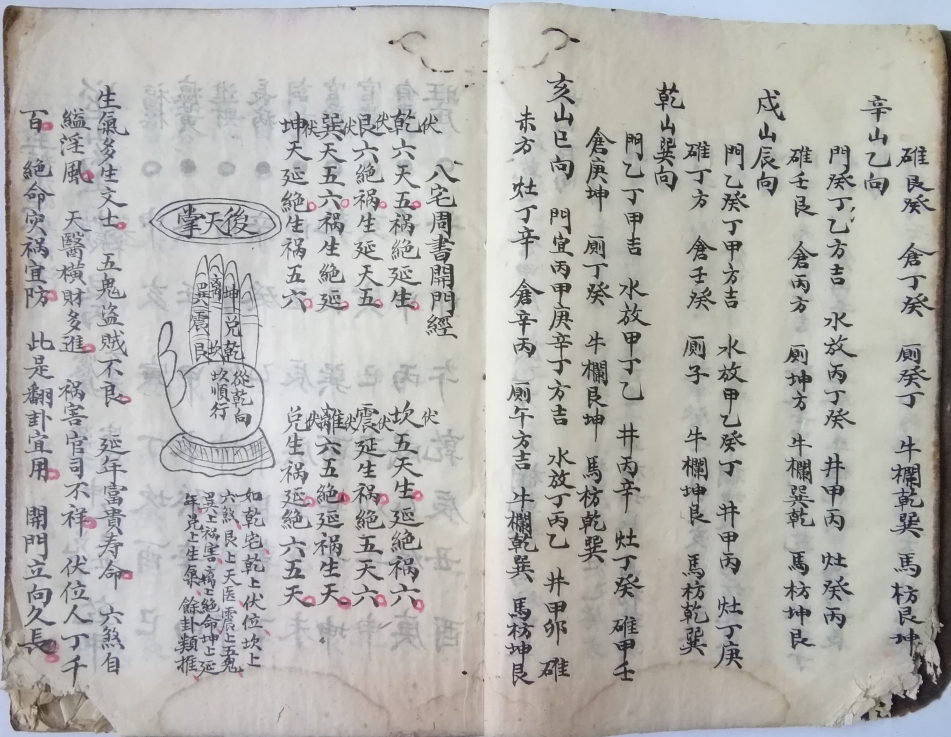 碓艮癸　倉丁癸　厠癸丁　牛欄乾巽　馬枋艮坤
辛山乙向
門癸丁乙方吉　水放丙丁癸　井甲丙　灶癸丙
碓壬艮　倉丙方　厠坤方　牛欄巽乾　馬枋坤艮
戌山辰向
門乙癸丁甲方吉　水放甲乙癸丁　井甲丙　灶丁庚
碓丁方　倉壬癸　厠子　牛欄坤艮　馬枋乾巽
乾山巽向
門乙丁甲吉　水放甲丁乙　井丙辛　灶丁癸　碓甲壬
倉庚坤　厠丁癸　牛欄艮坤　馬枋乾巽
亥山巳向　門宜丙甲庚辛丁方吉　水放丁丙乙　井甲卯　碓
未方　灶丁辛　倉辛丙　厠午方吉　牛欄乾巽　馬枋坤艮
八宅周書開門經
乾伏六天五禍絶延生　坎伏五天生延絶禍六
艮伏六絶禍生延天五　震伏延生禍絶五天六
巽伏天五六禍生絶延　離伏六五絶延禍生天
坤伏天延絶生禍五六　兌伏生禍延絶六五天
後天掌
乾兌坤離巽震艮坎
從乾向
坎順行
如乾宅乾上伏位坎上
六煞艮上天医震上五鬼
巽上禍害離上絶命坤上延
年兌上生氣　餘卦類推
生氣多生文士　五鬼盗賊不良　延年富貴寿命　六煞自
縊淫風　天醫横財多進　禍害官司不祥　伏位人丁千
百　絶命灾禍宜防　此是翻卦宜用　開門立向久長